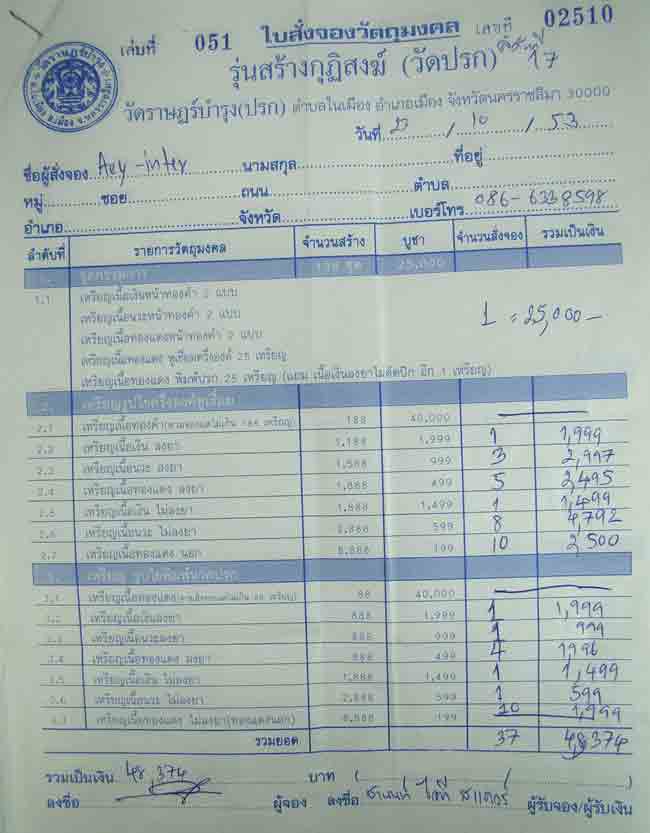 เล่มที่ 051 ใบสั่งจองวัตถุมงคล เลขที่ 02510
รุ่นสร้างกุฏิสงฆ์ (วัดปรก) 17
วัดราษฎร์บำรุง(ปรก) ตำบลในเมือง อำเภอเมือง จังหวัดนครราชสีมา 30000
วันที่ / 10 / 53
ชื่อผู้สั่งจอง Aey-intey นามสกุล ที่อยู่
หมู่ ซอย ถนน ตำบล
อำเภอ จังหวัด เบอร์โทร 086-6338598
ลำดับที่ รายการวัตถุมงคล จำนวนสร้าง บูชา จำนวนสั่งจอง รวมเป็นเงิน
1. ชุดกรรมการ 25,000
1.1 เหรียญเนื้อเงินหน้าทองคำ 2 แบบ
เหรียญเนื้อนวะหน้าทองคำ 2 แบบ
เหรียญเนื้อทองแดงหน้าทองคำ 2 แบบ 1 = 25,000-
เหรียญเนื้อทองแดง 25 เหรียญ
เหรียญเนื้อทองแดง พิมพ์ปรก 25 เหรียญ (แถม เนื้อเงินลงยาไม่ตัดปีก อีก 1 เหรียญ)
2.
2.1 เหรียญเนื้อทองคำ 188 40,000
2.2 เหรียญเนื้อเงิน ลงยา 1,188 1,999 1 1,999
2.3 เหรียญเนื้อนวะ ลงยา 1,588 999 3 2,997
2.4 เหรียญเนื้อทองแดง ลงยา 1,888 499 5 2,495
2.5 เหรียญเนื้อเงิน ไม่ลงยา 1,888 1,499 1 1,499
2.6 เหรียญเนื้อนวะ ไม่ลงยา 2,888 599 8 4,792
2.7 เหรียญเนื้อทองแดง นอก 8,888 199 10 2,500
3.
3.1 88 40,000
3.2 เหรียญเนื้อเงินลงยา 888 1,999 1 1,999
3.3 เหรียญเนื้อนวะลงยา 888 999 1 999
3.4 เหรียญเนื้อทองแดง ลงยา 888 499 4 1996
3.5 เหรียญเนื้อเงิน ไม่ลงยา 1,888 1,499 1 1,499
3.6 เหรียญเนื้อนวะ ไม่ลงยา 2,888 599 1 599
3.7 เหรียญเนื้อทองแดง ไม่ลงยา(ทองแดงนอก) 8,888 199 10 1,999
รวมยอด 37 48,374
รวมเป็นเงิน 48,374 บาท ( )
ลงชื่อ ผู้จอง ลงชื่อ ผู้รับจอง/ผู้รับเงิน